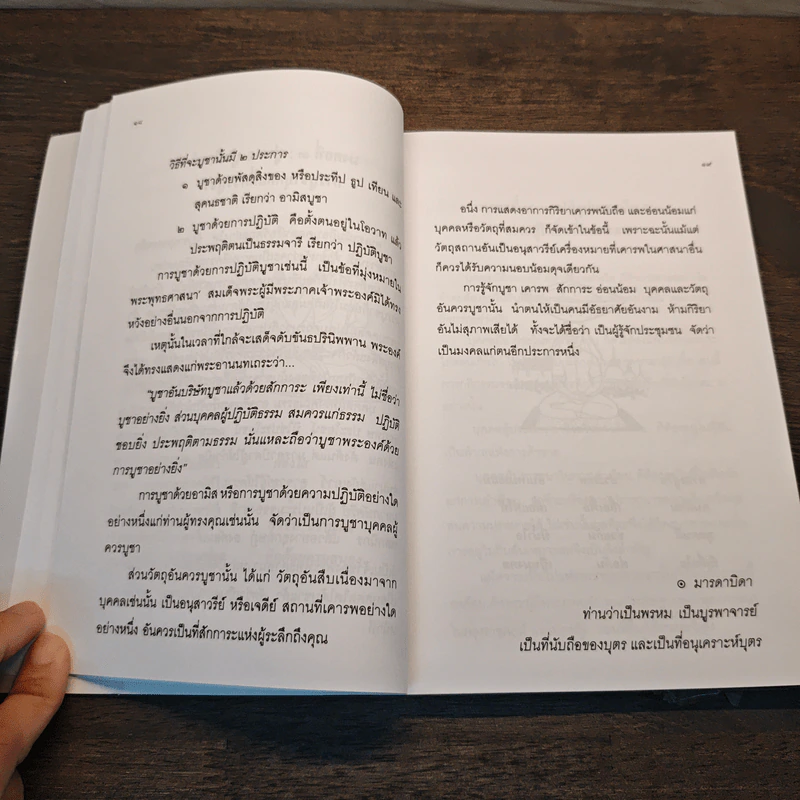 ๑๘
วิธีที่จะบูชานั้นมี ๒ ประการ
๑ บูชาด้วยพัสดุสิ่งของ หรือประทีป ธูป เทียน และ
สุคนธชาติ เรียกว่า อามิสบูชา
๒ บูชาด้วยการปฏิบัติ คือตั้งตนอยู่ในโอวาท แล้ว
ประพฤติตนเป็นธรรมจารี เรียกว่า ปฏิบัติบูชา
การบูชาด้วยการปฏิบัติบูชาเช่นนี้ เป็นข้อที่มุ่งหมายใน
พระพุทธศาสนา สมเด็จพระผู้มีพระภาคเจ้าพระองค์มิได้ทรง
หวังอย่างอื่นนอกจากการปฏิบัติ
เหตุนั้นในเวลาที่ใกล้จะเสด็จดับขันธปรินิพพาน พระองค์
จึงได้ทรงแสดงแก่พระอานนทเถระว่า...
"บูชาอันบริษัทบูชาแล้วด้วยสักการะ เพียงเท่านี้ ไม่ชื่อว่า
บูชาอย่างยิ่ง ส่วนบุคคลผู้ปฏิบัติธรรม สมควรแก่ธรรม ปฏิบัติ
ชอบยิ่ง ประพฤติตามธรรม นั่นแหละถือว่าบูชาพระองค์ด้วย
การบูชาอย่างยิ่ง"
การบูชาด้วยอามิส หรือการบูชาด้วยความปฏิบัติอย่างใด
อย่างหนึ่งแก่ท่านผู้ทรงคุณเช่นนั้น จัดว่าเป็นการบูชาบุคคลผู้
ควรบูชา
ส่วนวัตถุอันควรบูชานั้น ได้แก่ วัตถุอันสืบเนื่องมาจาก
บุคคลเช่นนั้น เป็นอนุสาวรีย์ หรือเจดีย์ สถานที่เคารพอย่างใด
อย่างหนึ่ง อันควรเป็นที่สักการะแห่งผู้ระลึกถึงคุณ
๑๙
อนึ่ง การแสดงอาการกิริยาเคารพนับถือ และอ่อนน้อมแก่
บุคคลหรือวัตถุที่สมควร ก็จัดเข้าในข้อนี้ เพราะฉะนั้นแม้แต่
วัตถุสถานอันเป็นอนุสาวรีย์เครื่องหมายที่เคารพในศาสนาอื่น
ก็ควรได้รับความนอบน้อมดุจเดียวกัน
การรู้จักบูชา เคารพ สักการะ อ่อนน้อม บุคคลและวัตถุ
อันควรบูชานั้น นำตนให้เป็นคนมีอัธยาศัยอันงาม ห้ามกิริยา
อันไม่สุภาพเสียได้ ทั้งจะได้ชื่อว่า เป็นผู้รู้จักประชุมชน จัดว่า
เป็นมงคลแก่ตนอีกประการหนึ่ง
๑ มารดาบิดา
ท่านว่าเป็นพรหม เป็นบูรพาจารย์
เป็นที่นับถือของบุตร และเป็นที่อนุเคราะห์บุตร